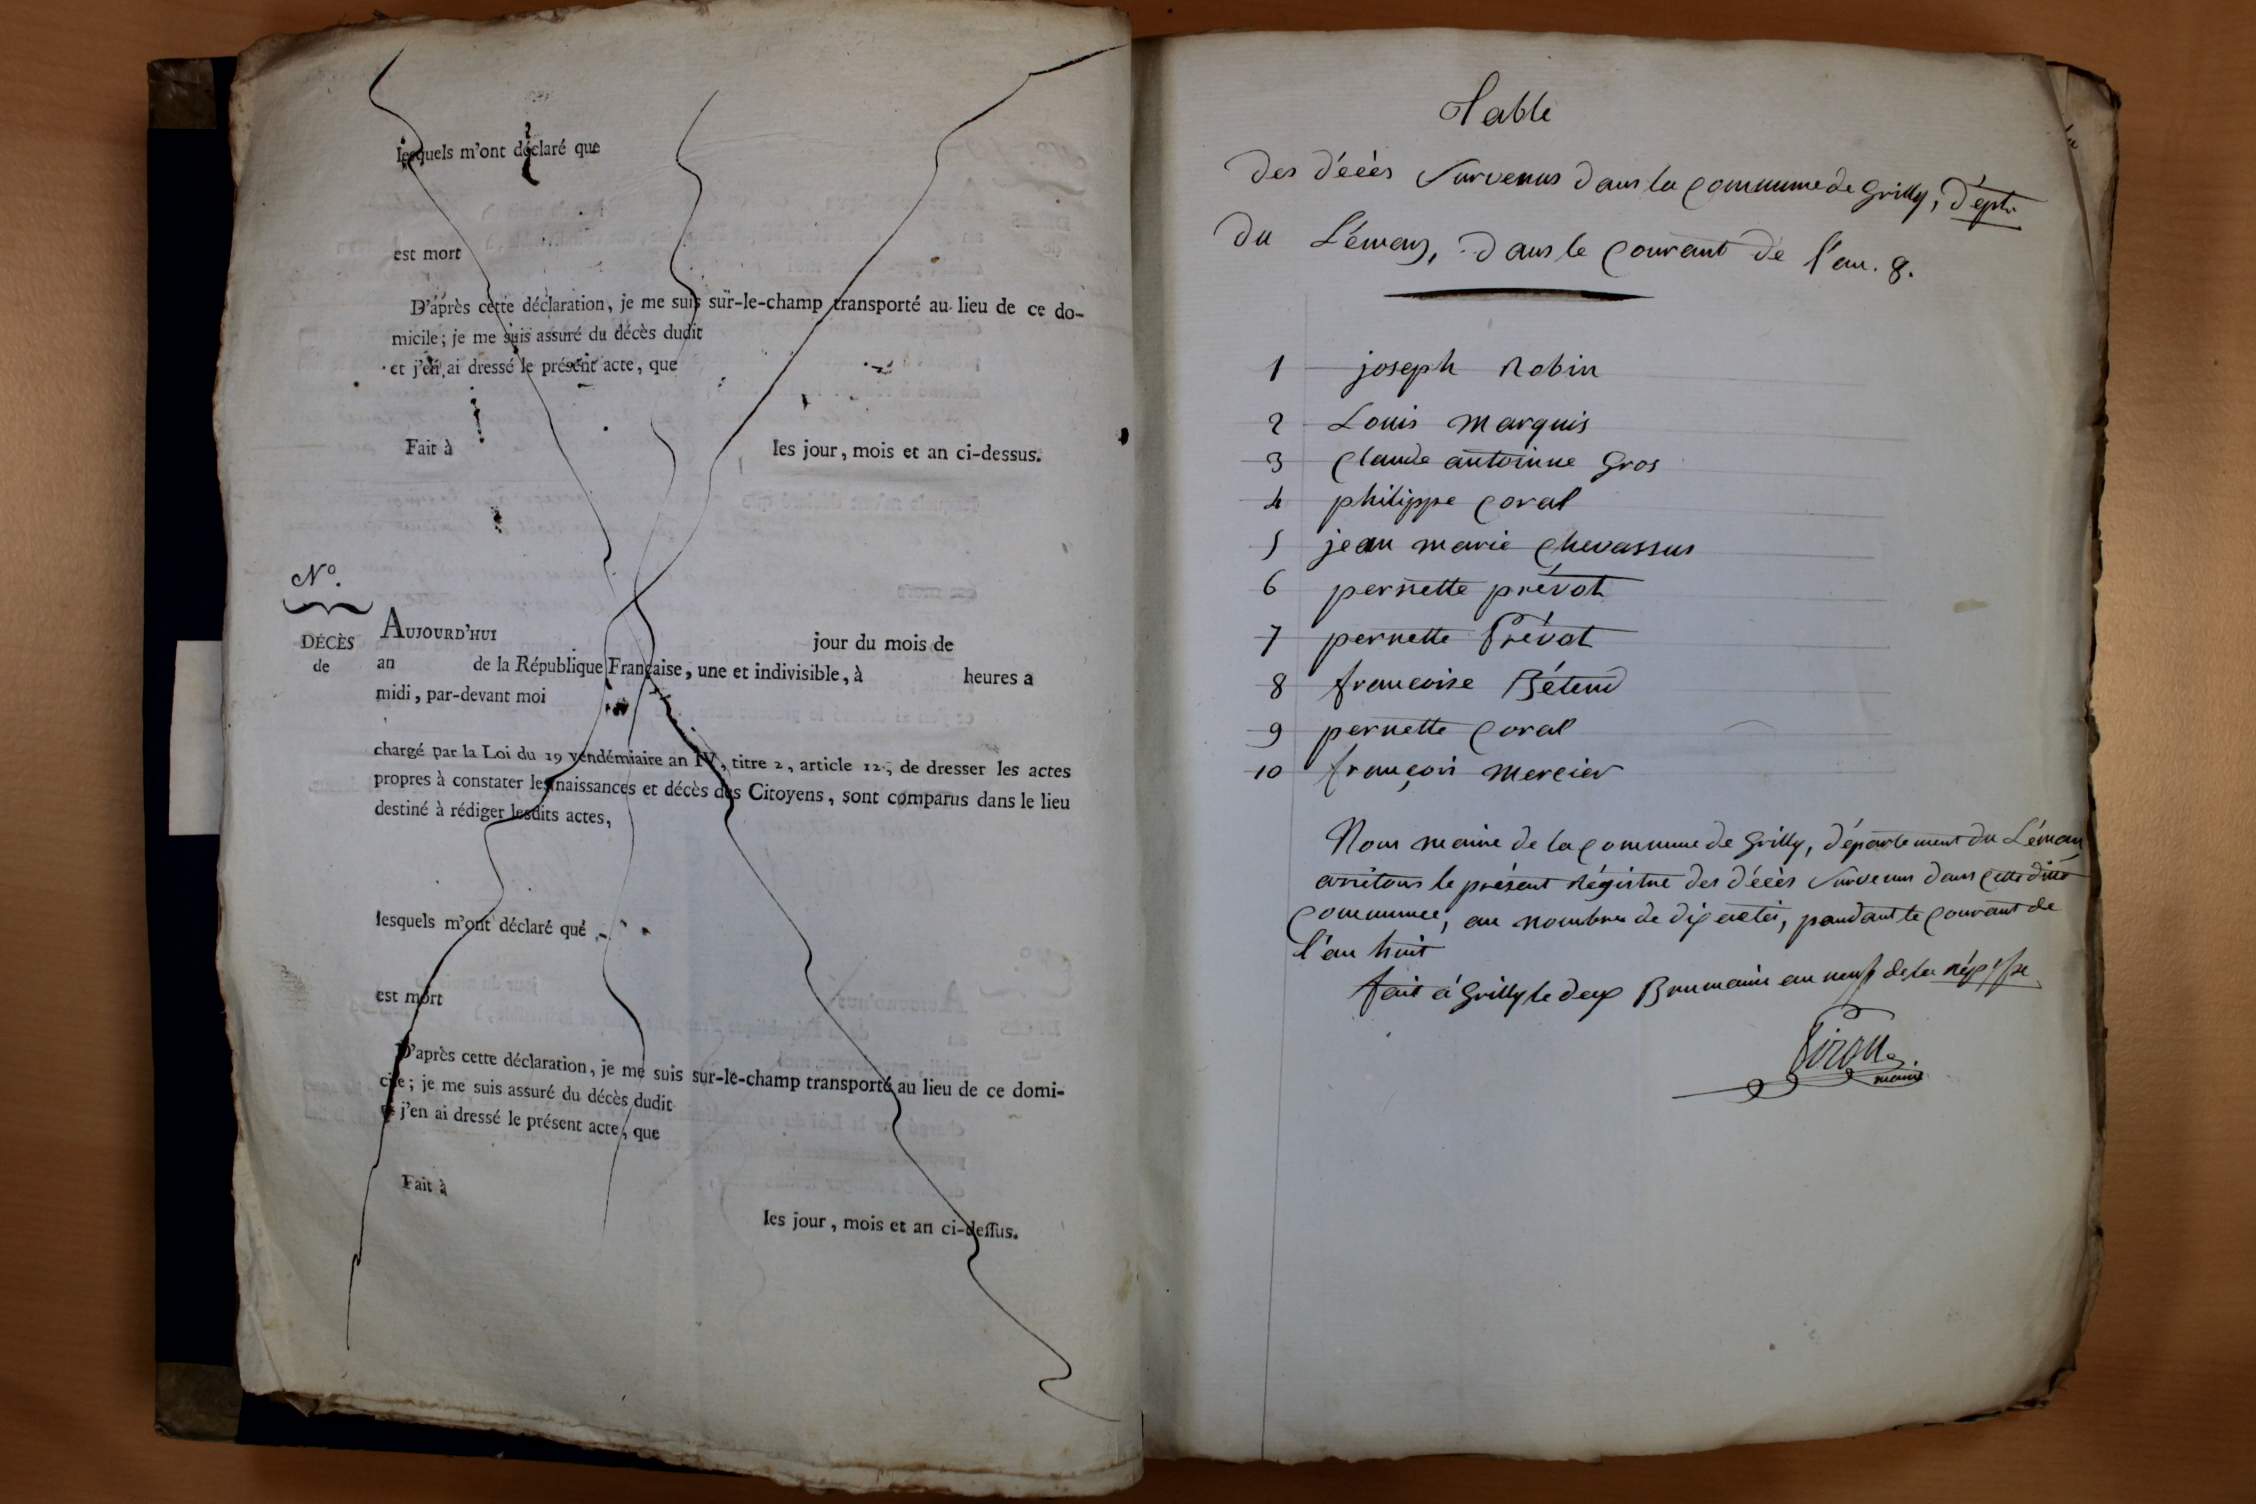 lesquels m'ont déclaré que
est mort
D'après cette déclaration, je me suis sur-le-champ transporté au lieu de ce do-
micile; je me suis assuré du décès dudit
et j'en ai dressé le présent acte, que
Fait à les jour, mois et an ci-dessus.
N°.
DÉCÈS
de
AUJOURD'HUI jour du mois de
an de la République Française, une et indivisible, à heures a
midi, par-devant moi
chargé par la Loi du 19 vendémiaire an IV, titre 2, article 12, de dresser les actes
propres à constater les naissances et décès des Citoyens, sont comparus dans le lieu
destiné à rédiger lesdits actes,
lesquels m'ont déclaré que
est mort
D'après cette déclaration, je me suis sur-le-champ transporté au lieu de ce domi-
cile; je me suis assuré du décès dudit
et j'en ai dressé le présent acte, que
Fait à
les jour, mois et an ci-deſſus.
Table
Des Décès Survenus Dans la Commune de Grilly, Dépt.
Du Léman, Dans le Courant de l'an. 8.
1 joseph Robin
2 Louis Marquis
3 Claude antoinne Gros
4 philippe Coral
5 jean marie Chevassus
6 pernette prévot
7 pernette Prévot
8 francoise Bétend
9 pernette Coral
10 françois Mercier
Nous maire de la Commune de Grilly, Département du Léman
arrêtons le présent Régistre des Décès Survenus dans cette ditte
Commune, au nombre de dix actes, pandant le Courant de
l'an huit
fait à Grilly le deux Brumaire an neuf de la Rép. fse
maire